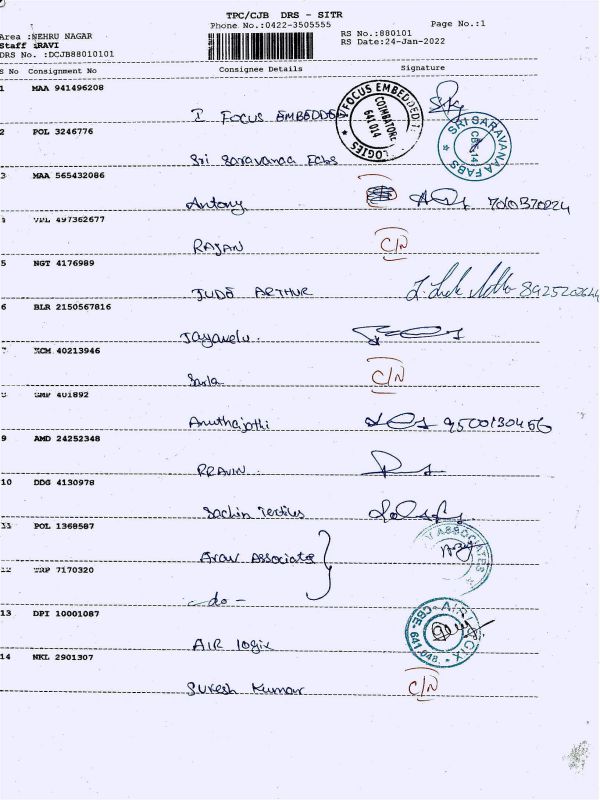 TPC/CJB DRS - SITR
Phone No.:0422-3505555
Page No.:1
Area :NEHRU NAGAR
Staff :RAVI
DRS No. :DCJB88010101
RS No.:880101
RS Date:24-Jan-2022
S No Consignment No Consignee Details Signature
1 MAA 941496208
I FOCUS EMBEDDED
FOCUS EMBEDDED
COIMBATORE
641 014
LOGIES
2 POL 3246776
Sri Saravanaa Fabs
SRI SARAVANAA FABS
CBE-14
3 MAA 565432086
Antony
4 497362677
RAJAN C/N
5 NGT 4176989
JUDE ARTHUR
6 BLR 2150567816
Jayavelu.
7 KCM 40213946
Sarla C/N
8 401892
Anuthajothi 9500130456
9 AMD 24252348
PRAVIN
10 DDG 4130978
Sachin Textiles
11 POL 1368587
Arav Associate
V ASSOCIATES
12 TRP 7170320
- do -
13 DPI 10001087
AIR logix
AIR LOGIX
CBE-641 048.
14 NKL 2901307
Suresh Kumar C/N